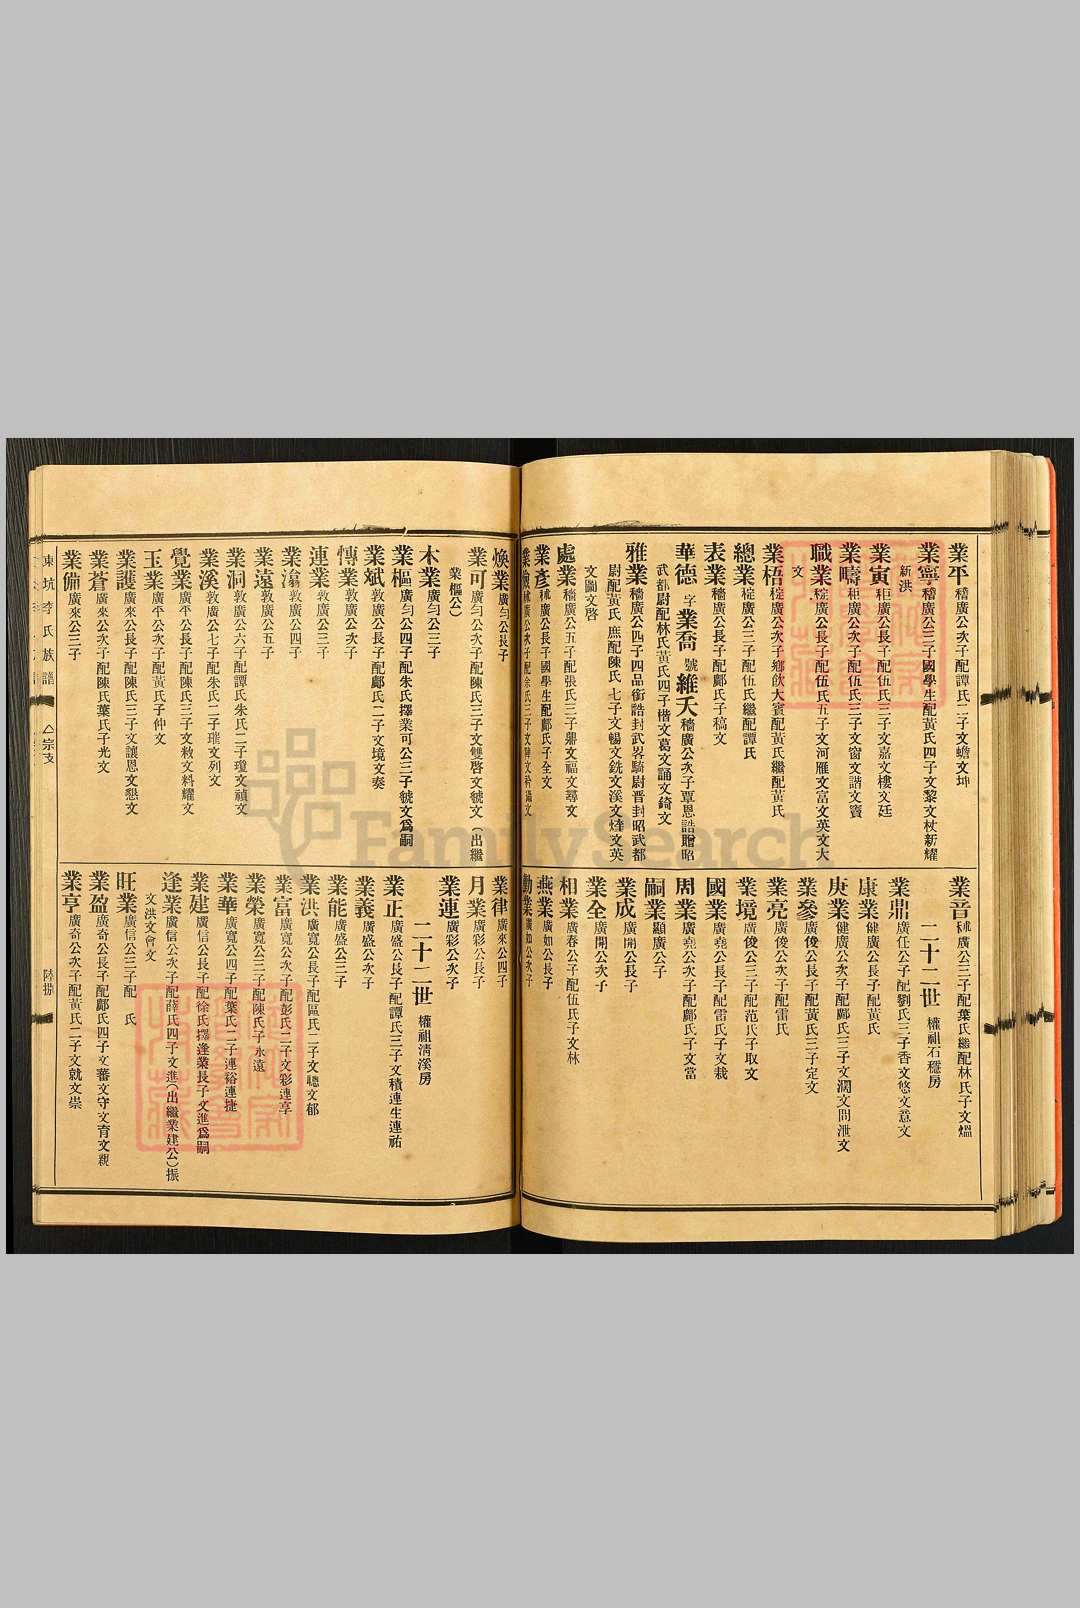 業平穡廣公次子配譚氏二子文蟾文坤
業寧穡廣公三子國學生配黃氏四子文黎文杖新耀
新洪
業寅秬廣公長子配伍氏三子文嘉文樓文廷
業疇秬廣公次子配伍氏三子文窗文諧文寶
職業稳廣公長子配伍氏五子文河雁文富文英文大
文
業梧椗廣公次子鄉飲大賓配黃氏繼配黃氏
總業椗廣公三子配伍氏繼配譚氏
表業穡廣公長子配鄺氏子稿文
華德字業喬號維天穡廣公次子覃恩誥贈昭
武都尉配林氏黃氏四子楷文葛文誦文錡文
雅業穡廣公四子四品銜誥封武畧騎尉晋封昭武都
尉配黃氏庶配陳氏七子文暢文銑文溪文煒文英
文圖文啓
處業穡廣公五子配張氏三子鼎文福文尋文
業彥秫廣公長子國學生配鄺氏子全文
業音秫廣公三子配葉氏繼配林氏子文煴
二十二世權祖石穩房
業鼎廣任公子配劉氏三子香文悠文意文
業康健廣公長子配黃氏
庚業健廣公次子配鄺氏三子文濶文問泄文
業參廣俊公長子配黃氏三子定文
業亮廣俊公次子配雷氏
業境廣俊公三子配范氏子取文
國業廣堯公長子配雷氏子文栽
周業廣堯公次子配鄺氏子文當
嗣業顯廣公子
業成廣開公長子
業全廣開公次子
相業廣春公子配伍氏子文林
燕業廣如公長子
勤業廣如公次子
煥業廣勻公長子
業可廣勻公次子配陳氏三子文雙啓文號文（出繼
業樞公）
木業廣勻公三子
業樞廣勻公四子配朱氏擇業可公三子號文爲嗣
業斌敦廣公長子配鄺氏二子文境文奏
業傳敦廣公次子
連業敦廣公三子
業滔廣公四子
業遠敦廣公五子
業洞敦廣公六子配譚氏朱氏二子瓊文禎文
業溪敦廣公七子配朱氏二子璀文列文
覺業廣平公長子配陳氏三子文敕文料耀文
玉業廣平公次子配黃氏子仲文
業護廣來公長子配陳氏三子文讓恩文懇文
業蒼廣來公次子配陳氏葉氏子光文
業備廣來公三子
業律廣來公四子
月業廣彩公長子
業連廣彩公次子
二十二世權祖清溪房
業正廣盛公長子配譚氏三子文積連生連祐
業義廣盛公次子
業能廣盛公三子
業洪廣寬公長子配區氏二子文聰文郁
業富廣寬公次子配彭氏二子文彩連享
業榮廣寬公三子配陳氏子永遠
業華廣寬公四子配葉氏二子連裕連捷
業建廣信公長子配徐氏擇逢業長子文進爲嗣
逢業廣信公次子配薛氏四子文進（出繼業建公）振
文洪文會文
旺業廣信公三子配　氏
業盈廣奇公長子配鄺氏四子文蕃文守文育文親
業亨廣奇公次子配黃氏二子文就文崇
東坑李氏族譜　宗支　陸捌
FamilySearch